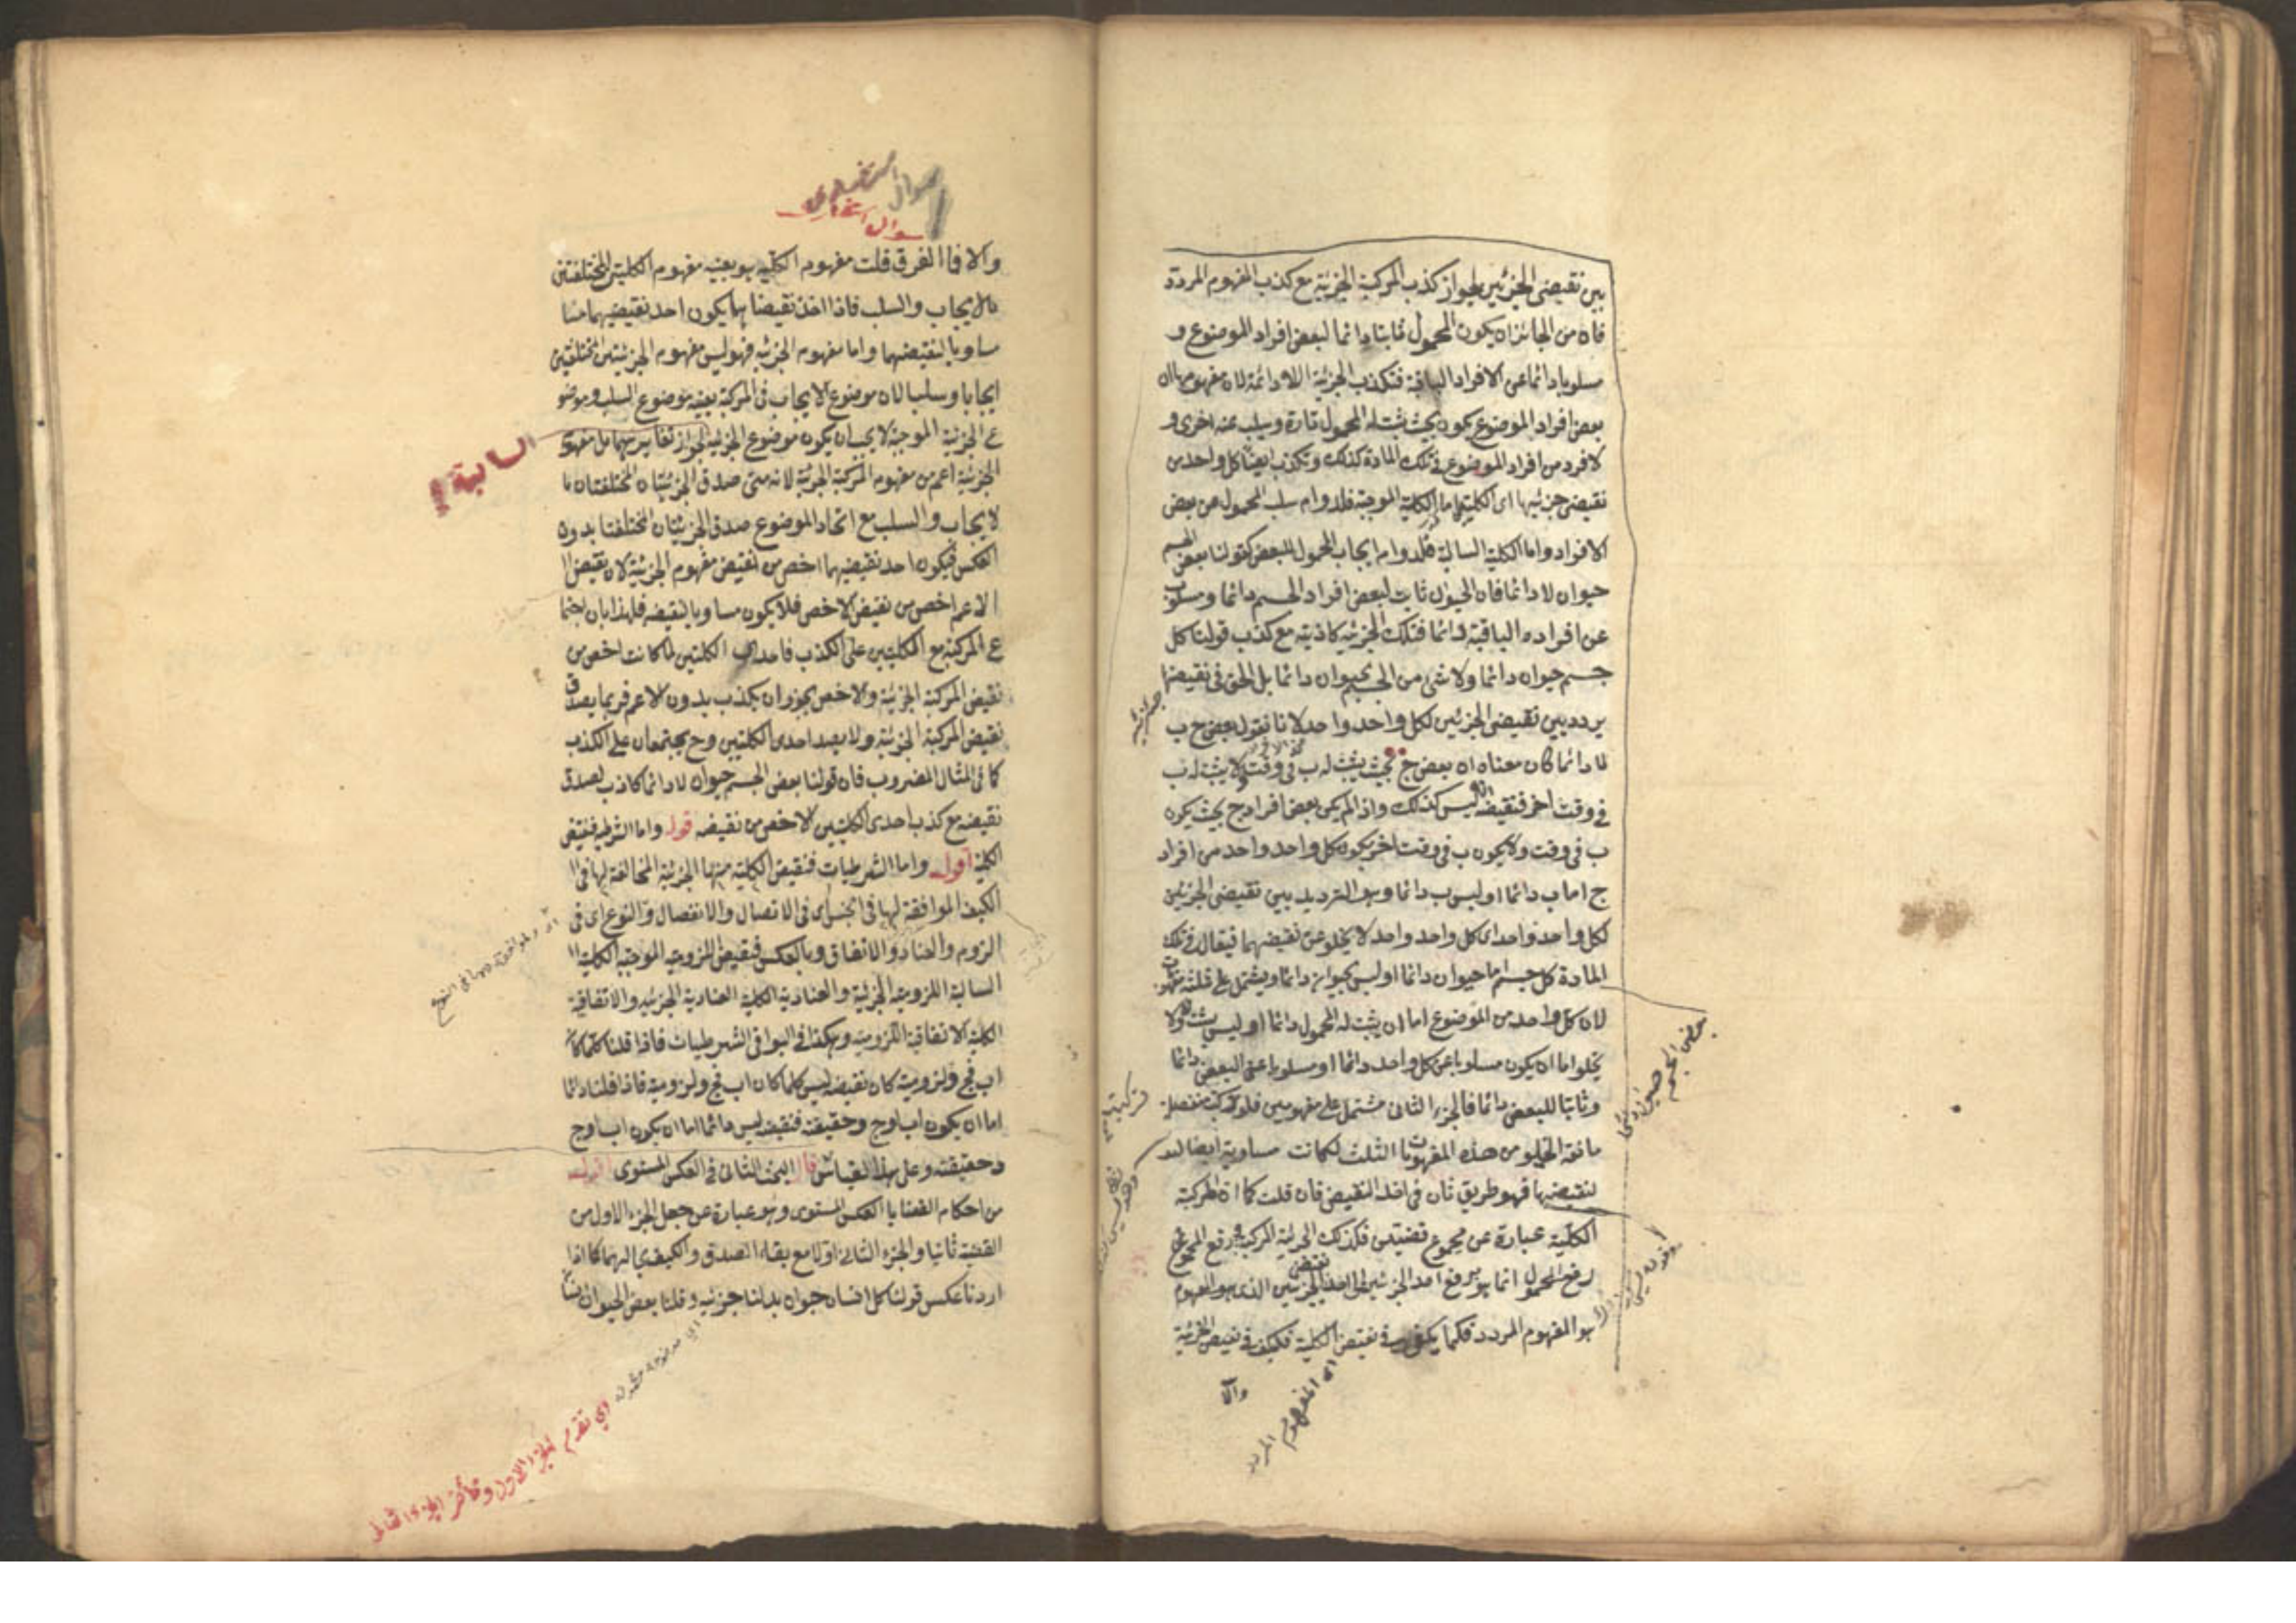 بين نقيضى الجزئين لجواز كذب المركبة الجزئية مع كذب المفهوم المردد
فان من الجائز ان يكون المحمول ثابتا دائما لبعض افراد الموضوع و
مسلوبا دائما عن الافراد الباقية فتكذب الجزئية اللادائمة لان مفهومها ان
بعض افراد الموضوع يكون بحيث يثبت له المحمول تارة ويسلب عنه اخرى و
لا فرد من افراد الموضوع فى تلك المادة كذلك وتكذب ايضا كل واحد من
نقيضى جزئيها اى الكليتين اما الكلية الموجبة فلدوام سلب المحمول عن بعض
الافراد واما الكلية السالبة فلدوام ايجاب المحمول للبعض كقولنا بعض الجسم
حيوان لا دائما فان الحيوان ثابت لبعض افراد الجسم دائما ومسلوب
عن افراده الباقية دائما فتلك الجزئية كاذبة مع كذب قولنا كل
جسم حيوان دائما ولا شئ من الجسم بحيوان دائما بل الحق فى نقيضها
يردد بين نقيضى الجزئين لكل واحد واحد لانا نقول بعض ج ب
لا دائما كان معناه ان بعض ج بحيث يثبت له ب فى وقت ولا يثبت له ب
فى وقت اخر فنقيضه انه ليس كذلك واذا لم يكن بعض افراد ج بحيث يكون
ب فى وقت ولا يكون ب فى وقت اخر يكون كل واحد واحد من افراد
ج اما ب دائما او ليس ب دائما وهو الترديد بين نقيضى الجزئين
لكل واحد واحد اى كل واحد واحد لا يخلو عن نقيضهما فيقال فى تلك
المادة كل جسم اما حيوان دائما او ليس بحيوان دائما ويشتمل على ثلثة مفهومات
لان كل واحد من الموضوع اما ان يثبت له المحمول دائما او ليس يثبت له ولا
يخلو اما ان يكون مسلوبا عن كل واحد دائما او مسلوبا عن البعض دائما
وثابتا للبعض دائما فالجزء الثانى مشتمل على مفهومين فلو تركبت منفصلة
مانعة الخلو من هذه المفهومات الثلث لكانت مساوية ايضا
لنقيضها فهو طريق ثان فى اخذ النقيض فان قلت كما ان المركبة
الكلية عبارة عن مجموع قضيتين فكذلك الجزئية المركبة ورفع المجموع
رفع المحمول انما هو برفع احد الجزئين اى احد نقيضى الجزئين الذى هو المفهوم
هو المفهوم المردد فكما يكفى فى نقيض الكلية فكيف فى نقيض الجزئية
والا
اى المفهوم المردد
بعض الجسم حيوان دائما
سوال استفسارى
سوال استفسارى
والا فما الفرق قلت مفهوم الكلية هو بعينه مفهوم الكليتين المختلفتين
بالايجاب والسلب فاذا اخذ نقيضاهما يكون احد نقيضيهما مسا
مساويا لنقيضهما واما مفهوم الجزئية فهو ليس مفهوم الجزئيتين المختلفتين
ايجابا وسلبا لان موضوع الايجاب فى المركبة بعينه موضوع السلب وموضو
ع الجزئية الموجبة لا يجب ان يكون موضوع الجزئية لجواز تغايرهما بل مفهوم
السالبة
الجزئية اعم من مفهوم المركبة الجزئية لانه متى صدق الجزئيتان المختلفتان با
لايجاب والسلب مع اتحاد الموضوع صدق الجزئيتان المختلفتا بدون
العكس فيكون احد نقيضيهما اخص من نقيض مفهوم الجزئية لان نقيض ا
الاعم اخص من نقيض الاخص فلا يكون مساويا لنقيضه فلهذا بان اجتما
ع المركبة مع الكليتين على الكذب فاحدى الكليتين لما كانت اخص من
نقيض المركبة الجزئية والاخص يجوز ان يكذب بدون الاعم فربما يصدق
نقيض المركبة الجزئية ولا يصد احدى الكليتين وح يجتمعان على الكذب
كما فى المثال المضروب فان قولنا بعض الجسم حيوان لا دائما كاذب لصدق
نقيضه مع كذب احدى الكليتين الاخص من نقيضه قوله واما الشرطية فنقيض
الكلية اقول واما الشرطيات فنقيض الكلية منها الجزئية المخالفة لها فى ا
الكيف الموافقة لها فى الجنس اى فى الاتصال والانفصال والنوع اى فى
اللزوم والعناد والاتفاق وبالعكس فنقيض اللزومية الموجبة الكلية ا
السالبة اللزومية الجزئية والعنادية الكلية العنادية الجزئية والاتفاقية
الكلية الاتفاقية اللزومية وهكذا فى البواقى الشرطيات فاذا قلنا كلما كا
اب فج د لزومية كان نقيضه ليس كلما كان اب فج د لزومية فاذا قلنا دائما
اما ان يكون اب او ج د حقيقية فنقيضه ليس دائما اما ان يكون اب او ج
د حقيقية وعلى هذا القياس قال البحث الثانى فى العكس المستوى اقول
من احكام القضايا العكس المستوى وهو عبارة عن جعل الجزء الاول من
القضية ثانيا والجزء الثانى اولا مع بقاء الصدق والكيف بحالهما كما اذا
اردنا عكس قولنا كل انسان حيوان بدلنا جزئيه وقلنا بعض الحيوان انسا
اى تقدم الجزء الاول وتأخر الجزء الثانى